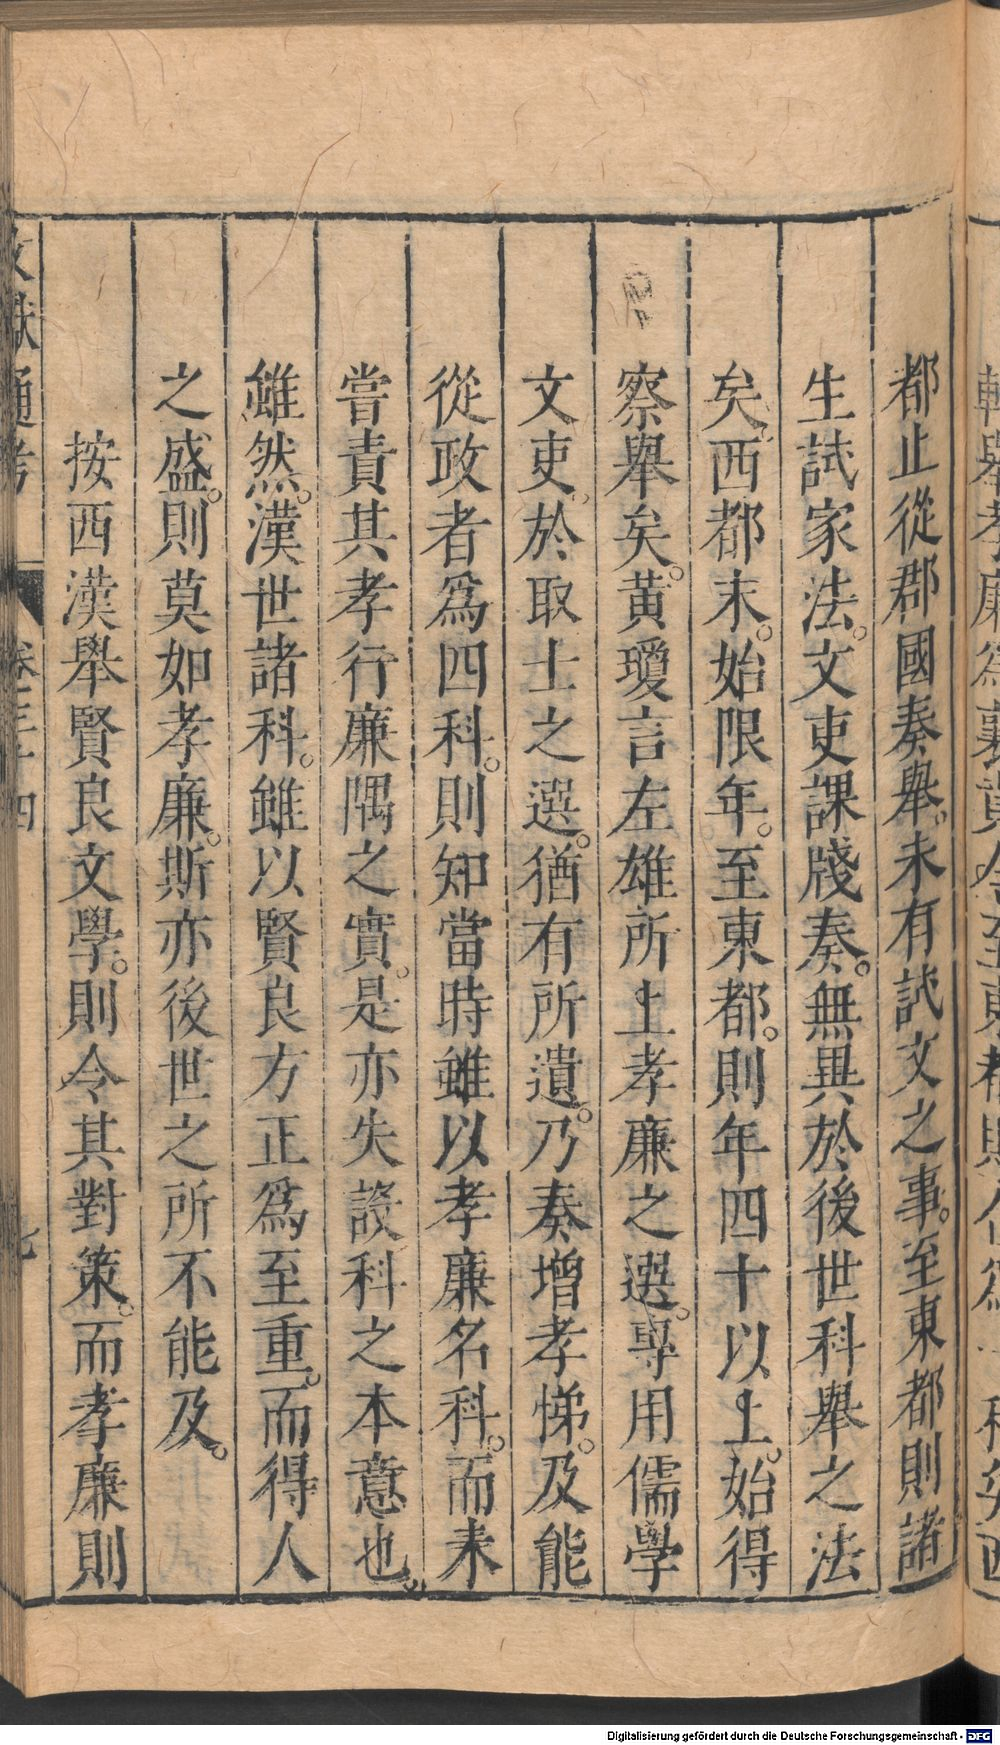 都止從郡國奏舉。未有試文之事。至東都則諸
生試家法。文吏課牋奏。無異於後世科舉之法
矣。西都末。始限年。至東都。則年四十以上。始得
察舉矣。黃瓊言左雄所上孝廉之選。專用儒學
文吏。於取士之選。猶有所遺。乃奏增孝悌。及能
從政者爲四科。則知當時雖以孝廉名科。而未
嘗責其孝行廉隅之實。是亦失設科之本意也。
雖然。漢世諸科。雖以賢良方正爲至重。而得人
之盛。則莫如孝廉。斯亦後世之所不能及。
按西漢舉賢良文學。則令其對策。而孝廉則
文獻通考 卷三十四 七
Digitalisierung gefördert durch die Deutsche Forschungsgemeinschaft - DFG